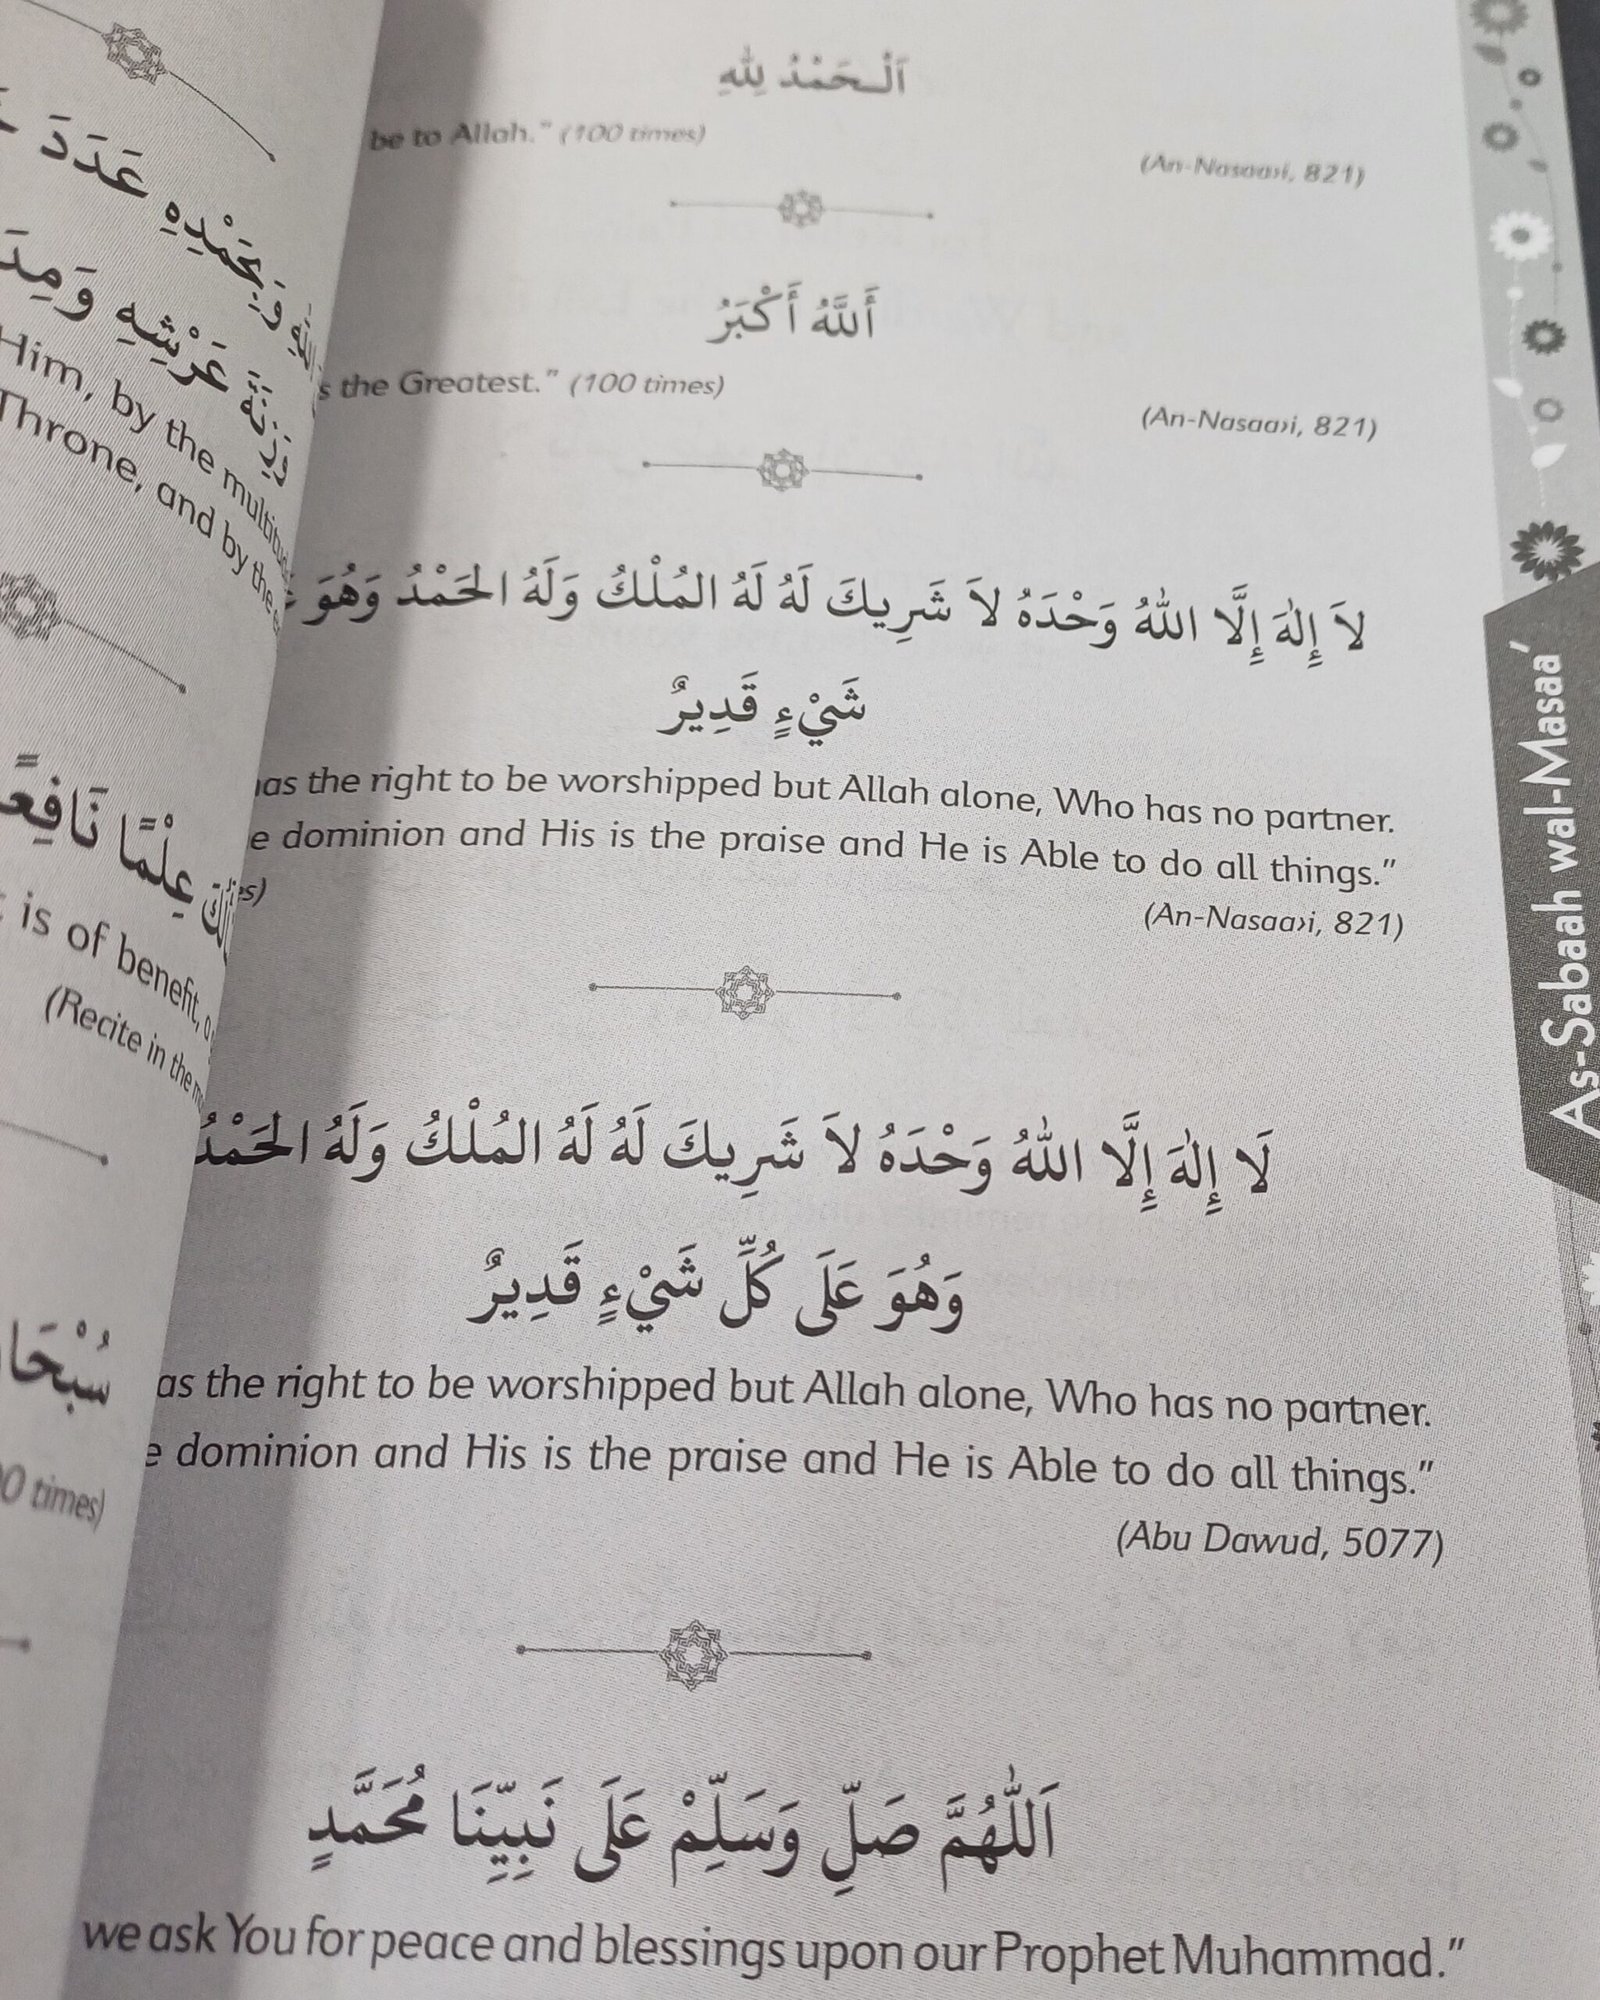 عَدَدَ
اللهِ وَبِحَمْدِهِ
عَرْشِهِ
وَزِنَةَ
Him, by the
Throne, and by the
عِلْمًا
is of benefit,
(Recite in the
times)
اَلْحَمْدُ لِلّٰهِ
be to Allah." (100 times)
(An-Nasaa›i, 821)
أَللَّهُ أَكْبَرُ
the Greatest." (100 times)
(An-Nasaa›i, 821)
لاَ إِلٰهَ إِلَّا اللهُ وَحْدَهُ لاَ شَرِيكَ لَهُ لَهُ المُلْكُ وَلَهُ الحَمْدُ وَهُوَ
شَيْءٍ قَدِيرٌ
the right to be worshipped but Allah alone, Who has no partner.
dominion and His is the praise and He is Able to do all things."
(An-Nasaa›i, 821)
لَا إِلٰهَ إِلَّا اللهُ وَحْدَهُ لاَ شَرِيكَ لَهُ لَهُ المُلْكُ وَلَهُ الحَمْدُ
وَهُوَ عَلَى كُلِّ شَيْءٍ قَدِيرٌ
the right to be worshipped but Allah alone, Who has no partner.
dominion and His is the praise and He is Able to do all things."
(Abu Dawud, 5077)
اَللّٰهُمَّ صَلِّ وَسَلِّمْ عَلَى نَبِيِّنَا مُحَمَّدٍ
we ask You for peace and blessings upon our Prophet Muhammad."
As-Sabaah wal-Masaa'